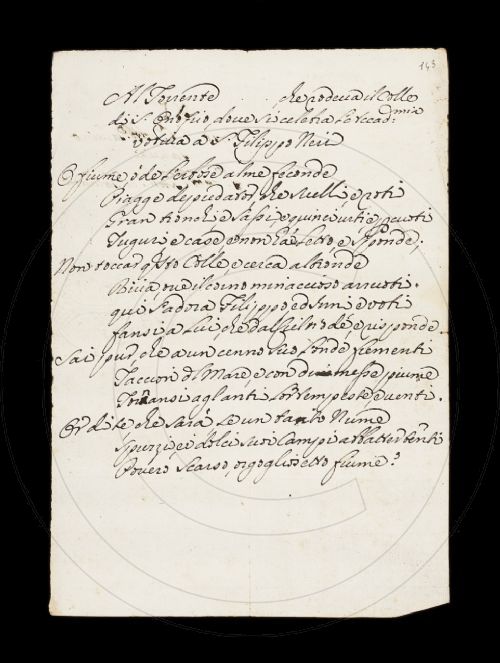 143
Al Torrente che rodeva il Colle
di S. Onofrio, dove si celebra le accad:mia
votiva a S. Filippo Neri
O fiume ò de l'erbose alme feconde
Piagge depredator, che svelli e roti
Gran tronchi e sassi, e quinci urti e scuoti
Tuguri e case e non hà letto, e sponde;
Non toccar q.sto Colle, e cerca altronde
Riva ove il corno minaccioso arruoti.
qui s'adora Filippo ed inni e voti
fansi a lui, che dal Ciel n'ode e risponde.
Sai pur, che a un cenno suo l'onde frementi
Taccion di Mare, e con dimesse piume
Tornansi agl'antri lor tempeste, e venti.
Or di te che sarà se un tanto Nume
Sprezzi, e i dolci suoi Campi abbatter tenti
Povero scarso, orgoglioso fiume?